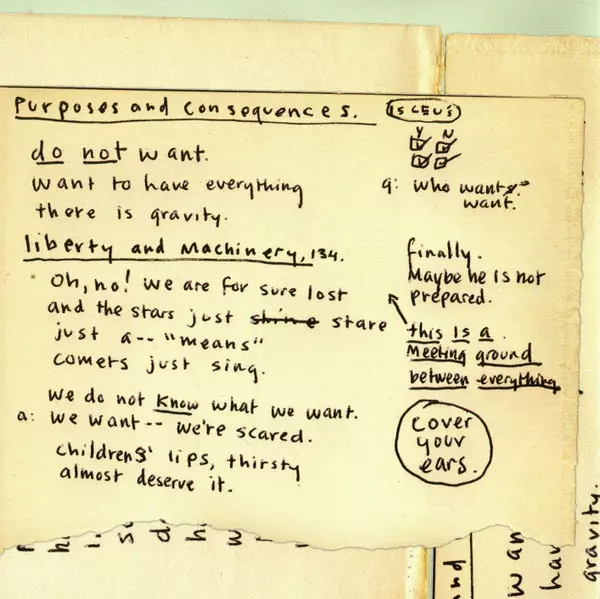 Purposes and Consequences.
do not want.
want to have everything
there is gravity.
liberty and Machinery, 134.
Oh, no! we are for sure lost
and the stars just shine stare
just a-- "means"
comets just sing.
we do not know what we want.
a: we want-- we're scared.
childrens' lips, thirsty
almost deserve it.
Y N
q: who wants
want.
finally.
Maybe he is not
prepared.
this is a
Meeting ground
between everything
cover
your
ears.
and
wan
hav
gravity.